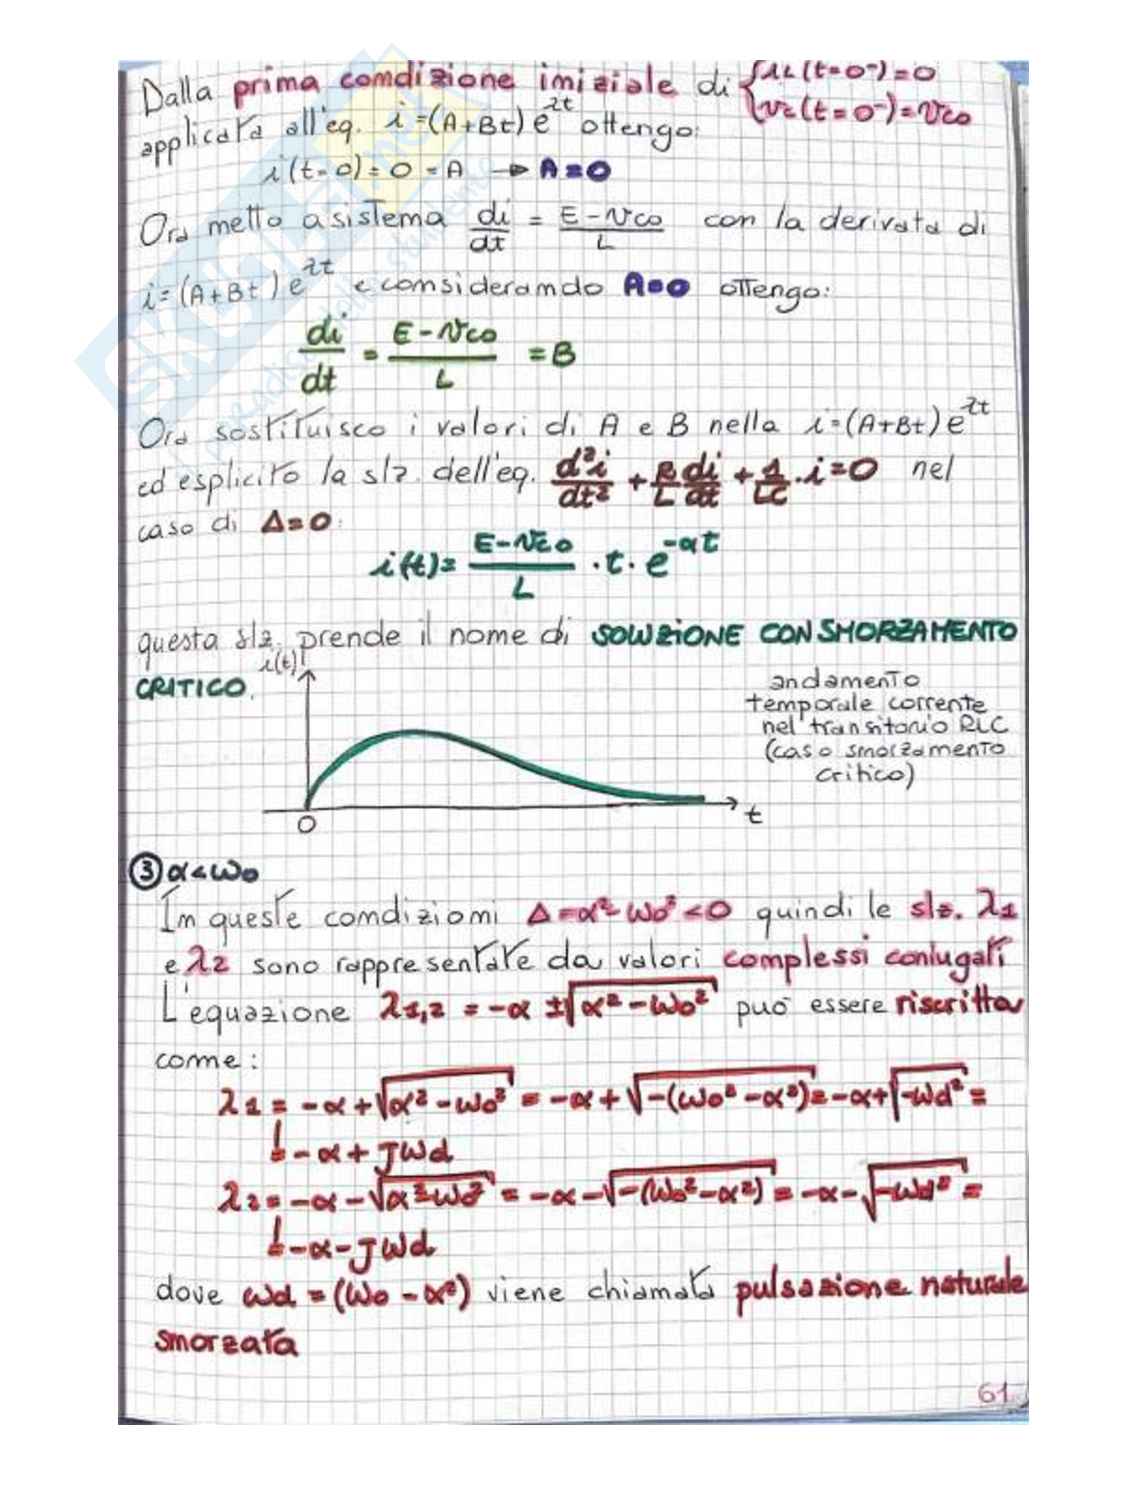 Dalla prima comdizione imiziale di {iL(t=0⁻)=0
{vc(t=0⁻)=Vco
applicata all'eq. i=(A+Bt)e^λt ottengo:
i(t=0)=0=A → A=0
Ora metto a sistema di/dt = E-Vco/L con la derivata di
i=(A+Bt)e^λt e comsideramdo A=0 ottengo:
di/dt = E-Vco/L = B
Ora sostituisco i valori di A e B nella i=(A+Bt)e^λt
ed esplicito la slz. dell'eq. d²i/dt² + R/L di/dt + 1/LC · i=0 nel
caso di Δ=0:
i(t)= E-Vco/L · t · e^-αt
questa slz. prende il nome di SOLUZIONE CON SMORZAMENTO
CRITICO.
i(t)
andamento
temporale corrente
nel transitorio RLC
(caso smorzamento
critico)
0
t
③ α<ω₀
Im queste comdiziomi Δ=α²-ω₀²<0 quindi le slz. λ1
e λ2 sono rappresentate da valori complessi coniugati
L'equazione λ1,2 = -α ±√(α²-ω₀²) può essere riscritta
come:
λ1 = -α+√(α²-ω₀²) = -α+√(-(ω₀²-α²)) = -α+√(-ωd²) =
= -α + Jωd
λ2 = -α-√(α²-ω₀²) = -α-√(-(ω₀²-α²)) = -α-√(-ωd²) =
= -α-Jωd
dove ωd = (ω₀-α²) viene chiamata pulsazione naturale
smorzata
61